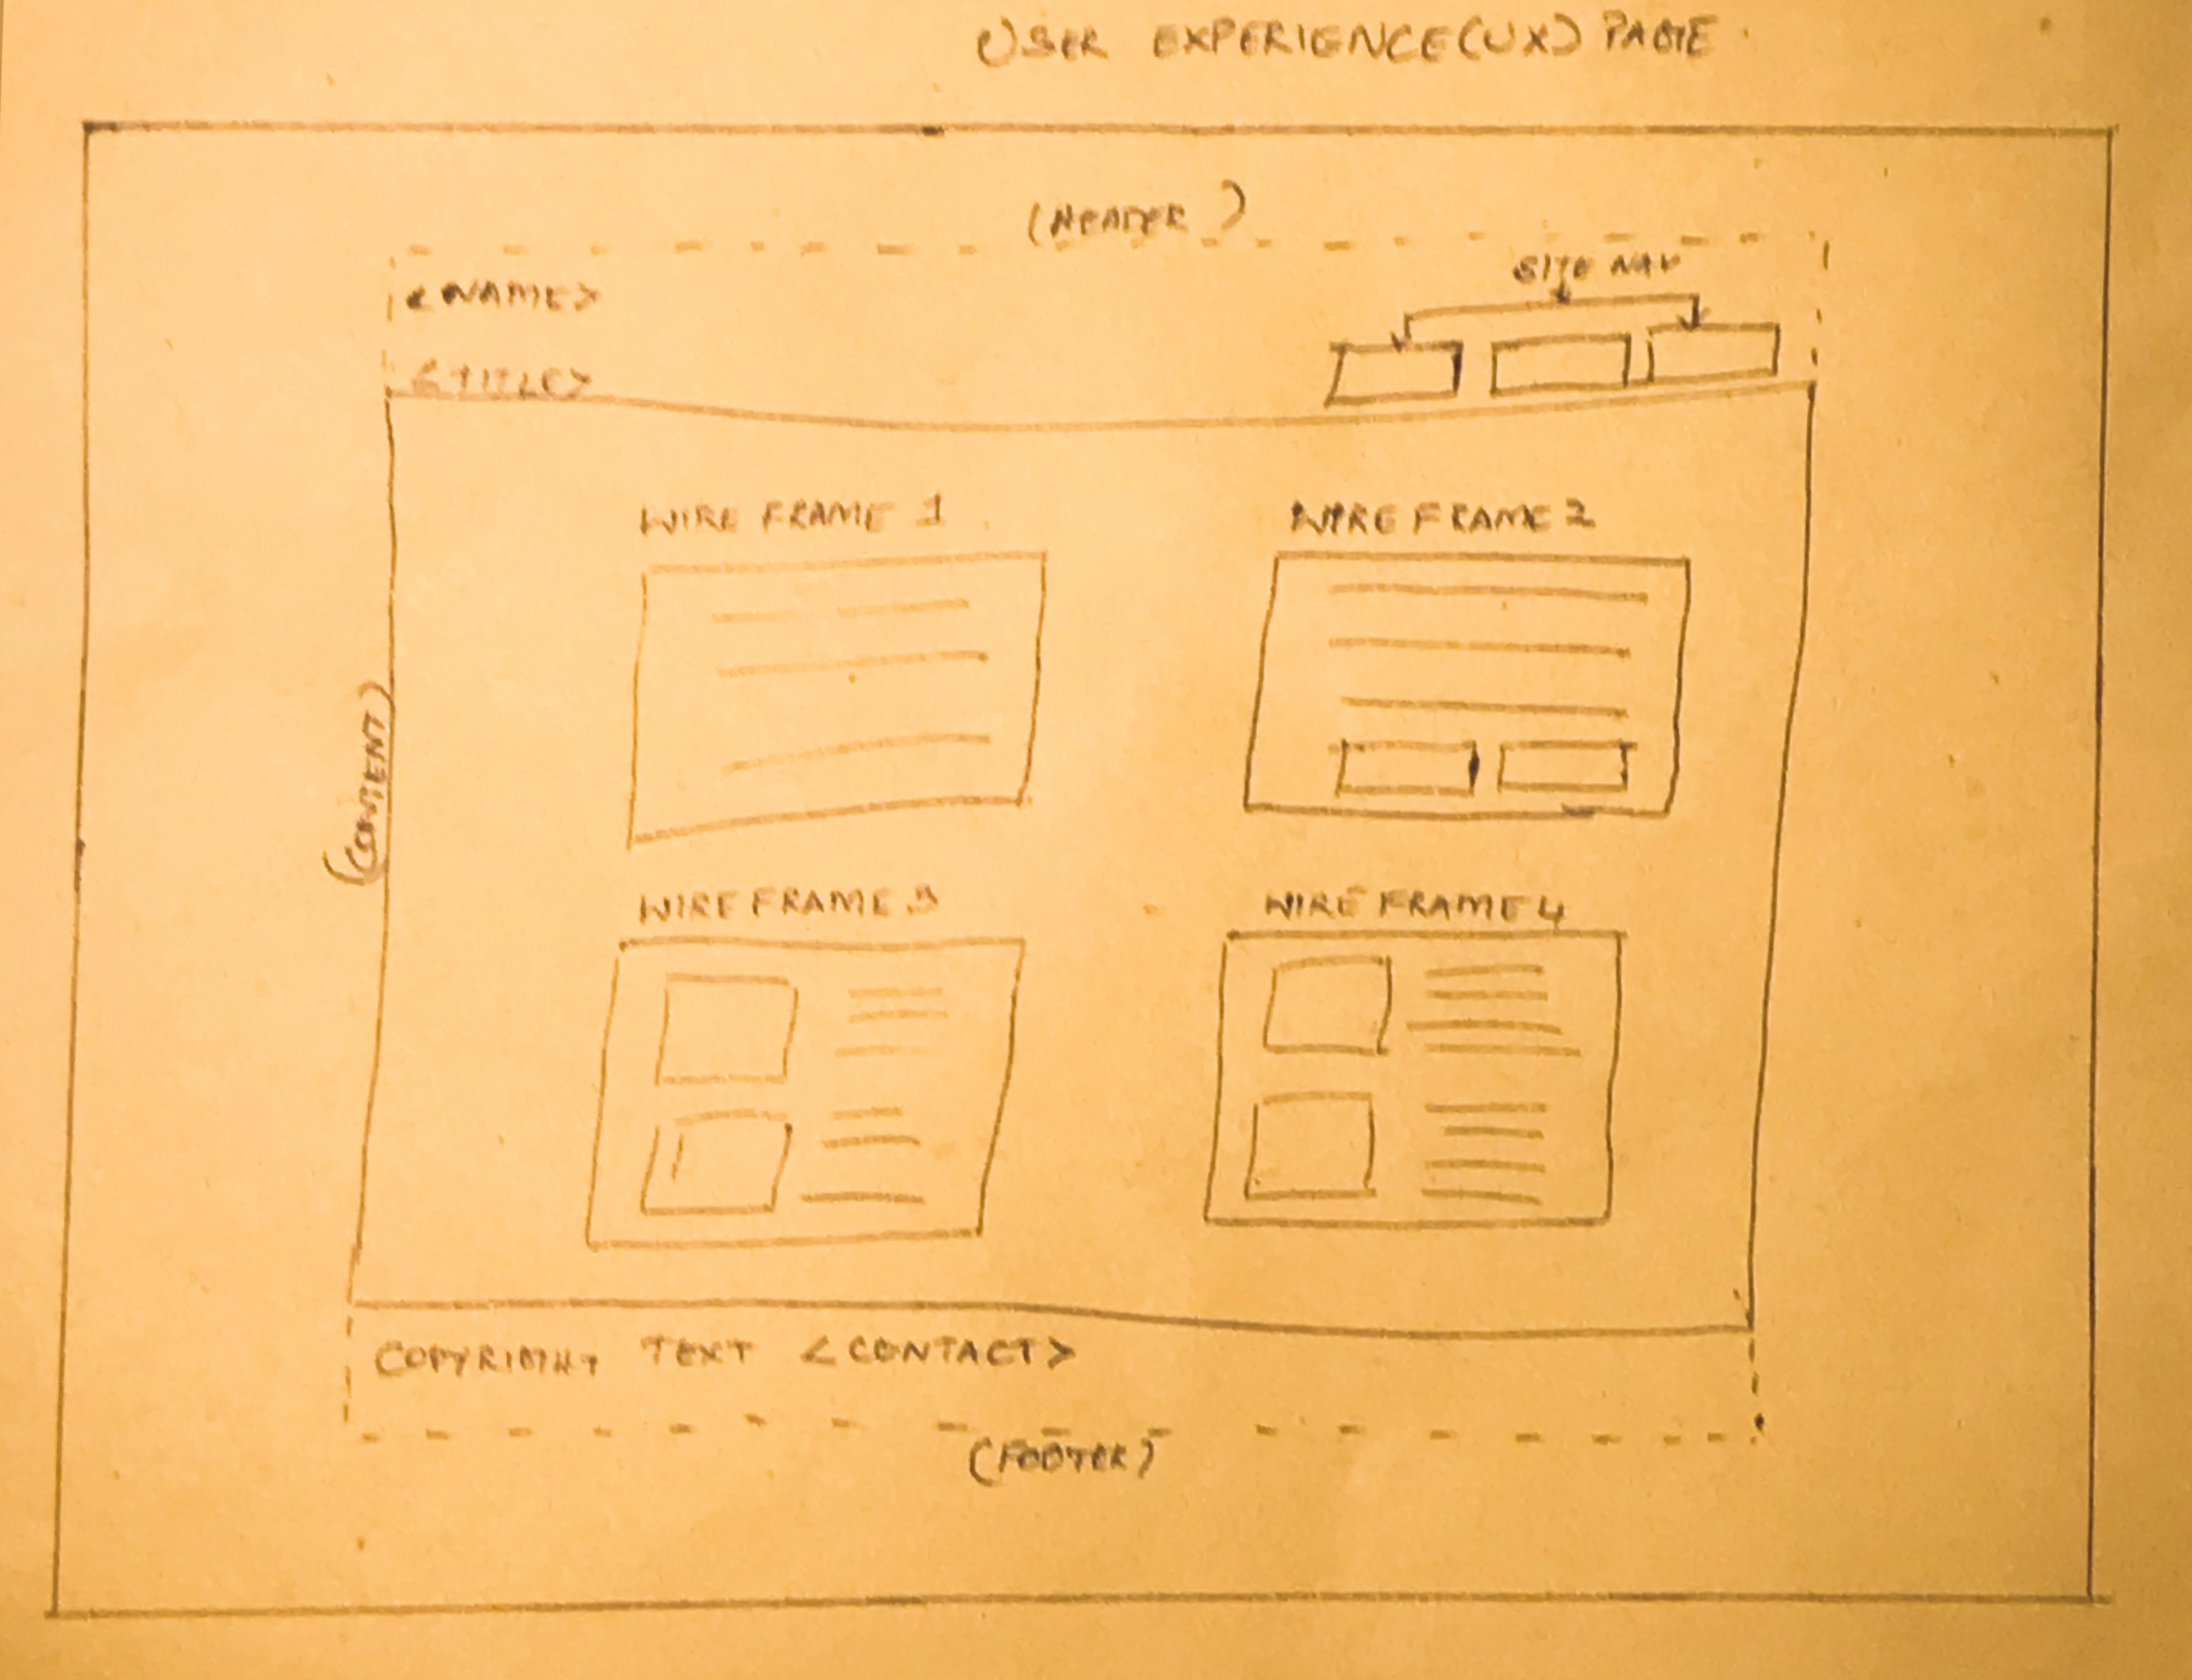 USER EXPERIENCE(UX) PAGE
(HEADER)
<NAME>
SITE NAV
<TITLE>
WIRE FRAME 1
WIRE FRAME 2
(CONTENT)
WIRE FRAME 3
WIRE FRAME 4
COPYRIGHT TEXT <CONTACT>
(FOOTER)